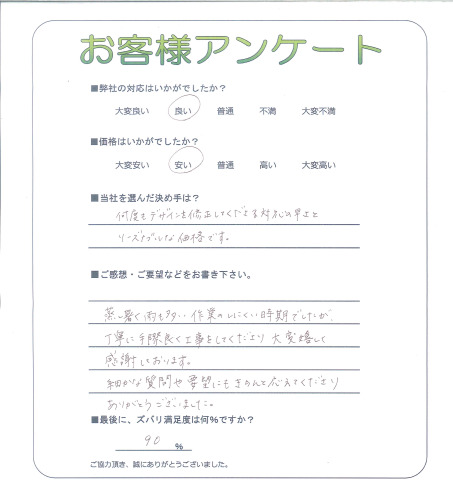 お客様アンケート
■弊社の対応はいかがでしたか？
大変良い 良い 普通 不満 大変不満
■価格はいかがでしたか？
大変安い 安い 普通 高い 大変高い
■当社を選んだ決め手は？
何度もデザインを修正してくださる対応の早さと
リーズナブルな価格です。
■ご感想・ご要望などをお書き下さい。
蒸し暑く雨も多い作業のしにくい時期でしたが、
丁寧に手際良く工事をしてくださり大変
感謝しております。
細かな質問や要望にもきちんと応えてくださり
ありがとうございました。
■最後に、ズバリ満足度は何%ですか？
90 %
ご協力頂き、誠にありがとうございました。